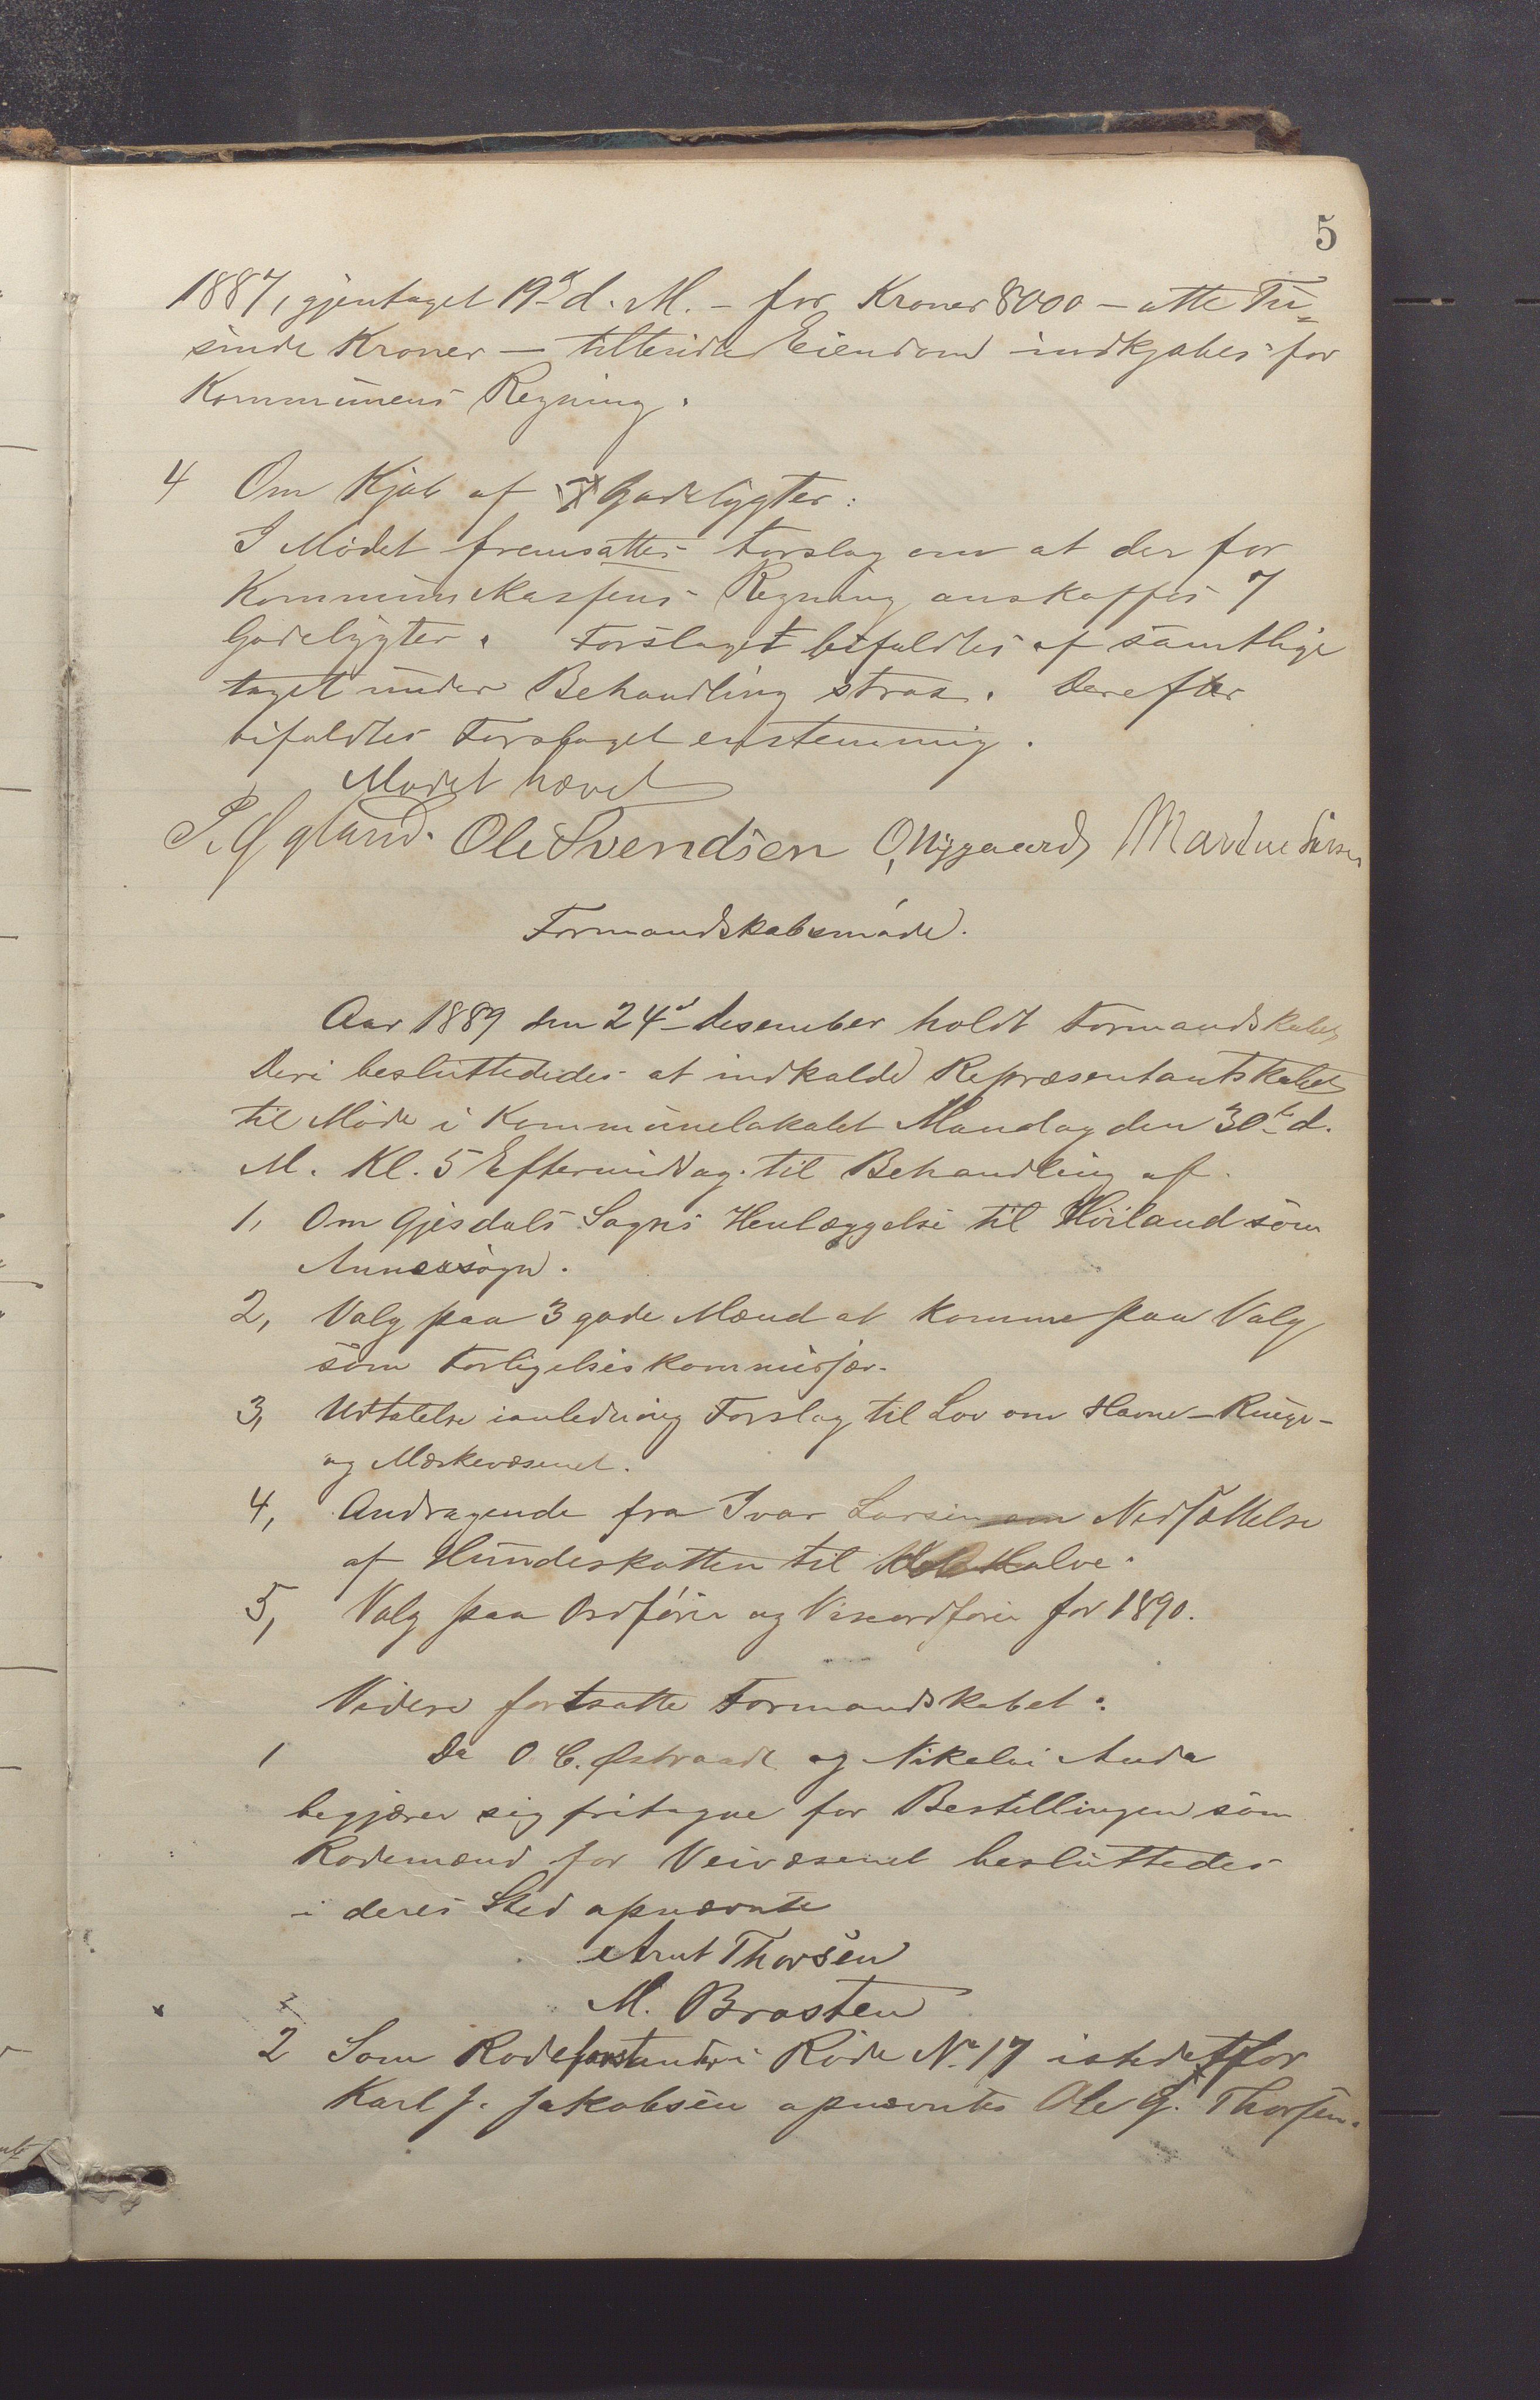 5
1887, gjentaget 19d d. M. – for Kroner 8000 – otte Tu=
sinde Kroner – tilbudte Eiendom indkjøbes for
Kommunens Regning.
4 Om Kjøb af 7 Gadelygter:
I Mødet fremsattes Forslag om at der for
Kommunekassens Regning anskaffes 7
Gadelygter. Forslaget bifaldtes af samtlige
taget under Behandling strax. Derefter
bifaldtes Forslaget enstemmig.
Mødet hævet
P. Øgland. Ole Svendsen O, Nygaard
Formandskabsmøde.
Aar 1889 den 24d Desember holdt Formandskabet
Deri besluttededes at indkalde Repræsentantskabet
til Møde i Kommunelokalet Mandag den 30te d.
M. Kl. 5 Eftermiddag til Behandling af
1, Om Gjesdals Sogns Henlæggelse til Høiland som
Annexsogn.
2, Valg paa 3 gode Mænd at komme paa Valg
som Forligelseskommisær.
3, Udtalelse ianledning Forslag til Lov om Havne-Ringe-
og Mærkevæsenet.
4, Andragende fra Ivar Larsen om Nedsættelse
af Hundeskatten til det Halve.
5, Valg paa Ordfører og Viseordfører for 1890.
Videre fortsatte Formandskabet:
1 Da O. C. Østraadt og Nikolai Auda
begjærer sig fritagne for Bestillingen som
Rodemænd for Veivæsenet besluttedes
i deres Sted opnævnte
Arnt Thorsen
M. Brasten
2 Som Rodeforstander i Rode No 17 istedetfor
Karl J. Jakobsen opnævntes Ole G. Thorsen.